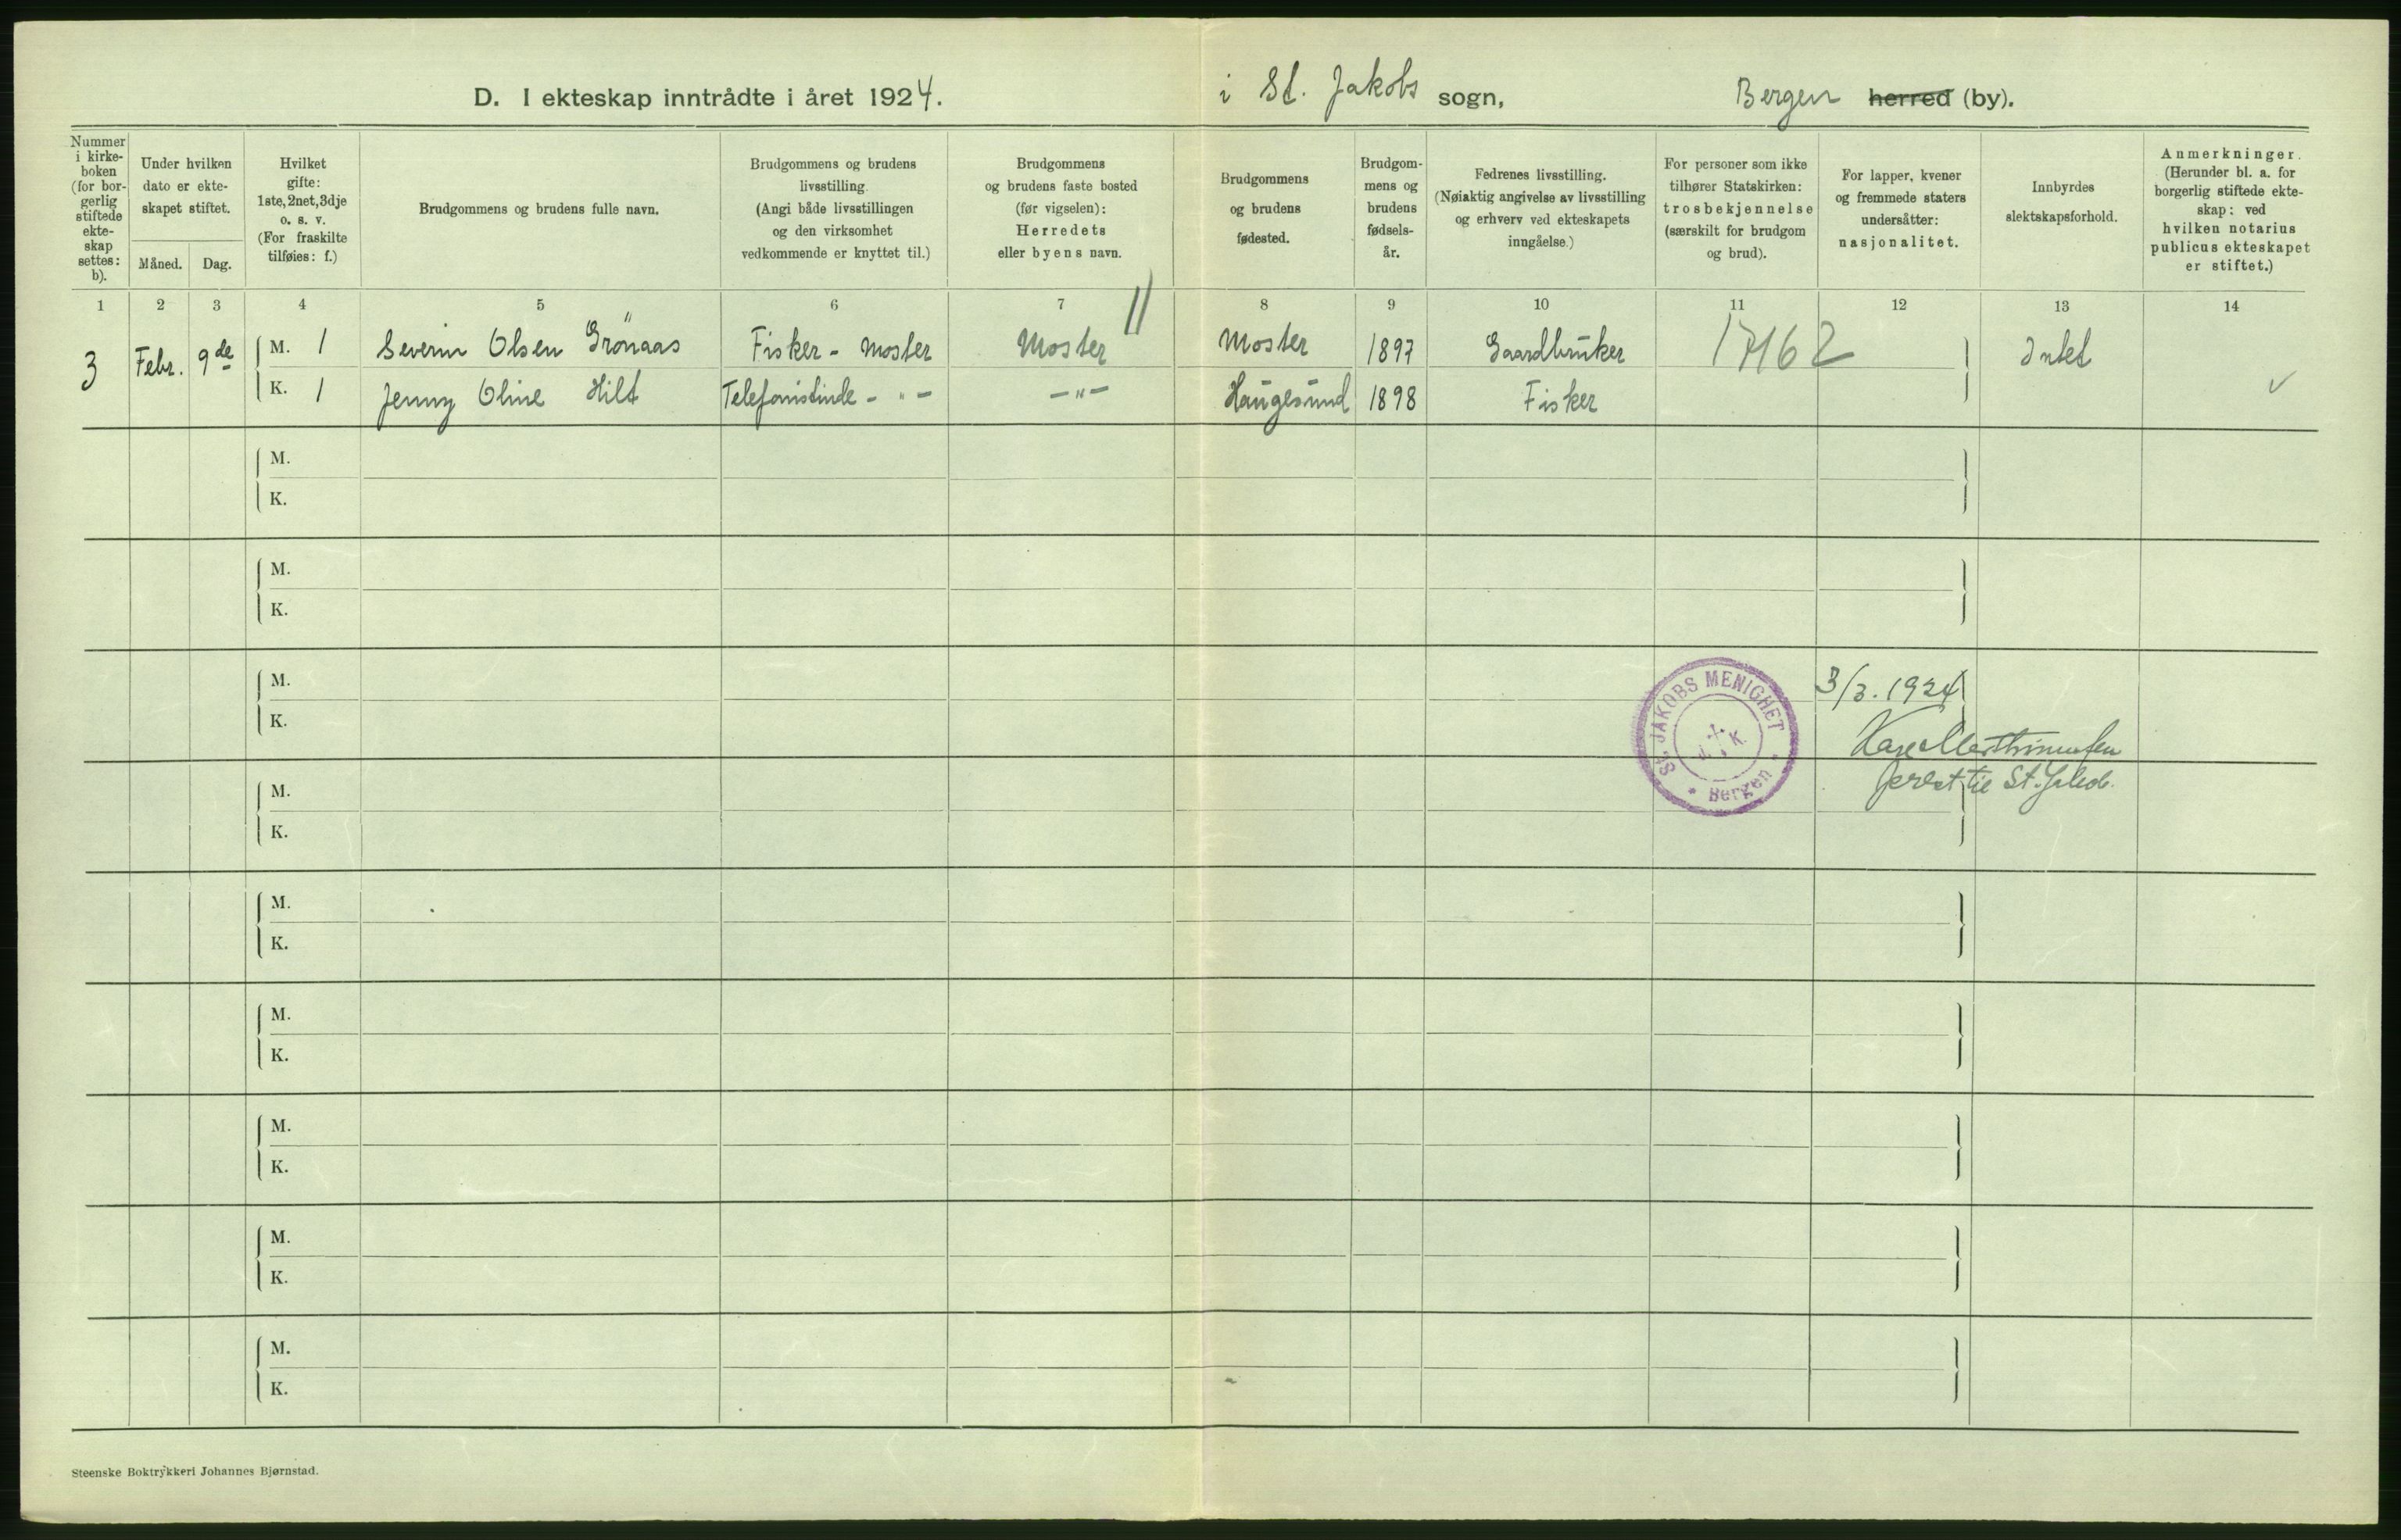 D. I ekteskap inntrådte i året 1924. i St. Jakobs sogn, Bergen herred (by).
Nummer i kirke- boken (for bor- gerlig stiftede ekte- skap settes: b).
Under hvilken dato er ekte- skapet stiftet.
Måned. Dag.
Hvilket gifte: 1ste, 2net, 3dje o. s. v. (For fraskilte tilføies: f.)
Brudgommens og brudens fulle navn.
Brudgommens og brudens livsstilling. (Angi både livsstillingen og den virksomhet vedkommende er knyttet til.)
Brudgommens og brudens faste bosted (før vigselen): Herredets eller byens navn.
Brudgommens og brudens fødested.
Brudgom- mens og brudens fødsels- år.
Fedrenes livsstilling. (Nøiaktig angivelse av livsstilling og erhverv ved ekteskapets inngåelse.)
For personer som ikke tilhører Statskirken: trosbekjennelse (særskilt for brudgom og brud).
For lapper, kvener og fremmede staters undersåtter: nasjonalitet.
Innbyrdes slektskapsforhold.
Anmerkninger. (Herunder bl. a. for borgerlig stiftede ekte- skap: ved hvilken notarius publicus ekteskapet er stiftet.)
1 2 3 4 5 6 7 8 9 10 11 12 13 14
3 Febr. 9de M. 1 Severin Olsen Grönaas Fisker - Moster Moster Moster 1897 Gaardbruker 17162 Intet
K. 1 Jenny Oline Hilt Telefonistinde - " - - " - Haugesund 1898 Fisker ✓
M.
K.
M.
K.
M.
K.
ST. JAKOBS MENIGHET Bergen
3/3. 1924
St. Jakob.
M.
K.
M.
K.
M.
K.
M.
K.
M.
K.
M.
K.
Steenske Boktrykkeri Johannes Bjørnstad.